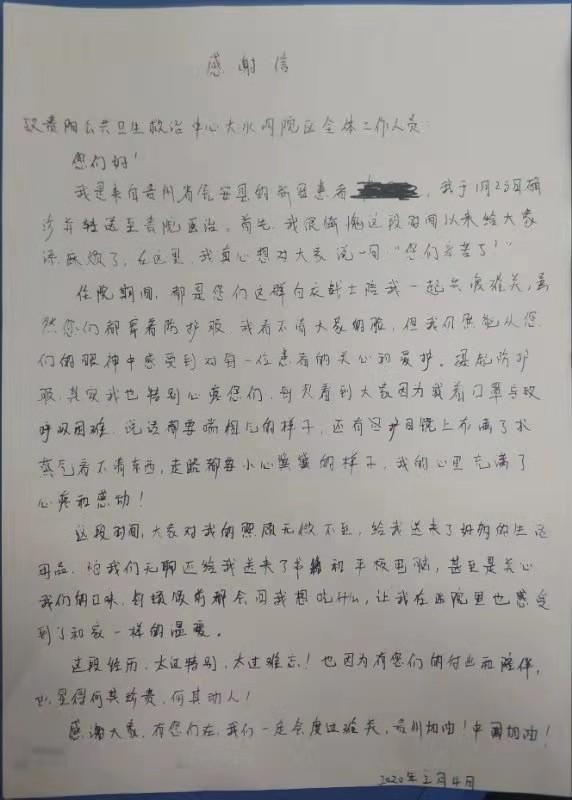 感谢信
致贵阳公共卫生救治中心大水沟院区全体工作人员:
您们好!
我是来自贵州省 的新冠患者 ,我于1月28日确
诊并转送至贵院医治。首先,我很惭愧这段时间以来给大家
添麻烦了,在这里,我真心想对大家说一句“您们辛苦了!”
住院期间,都是您们这群白衣战士陪我一起共渡难关,虽
然您们都穿着防护服,我看不清大家的脸,但我仍然能从您
们的眼神中感受到对每一位患者的关心和爱护。 防护
服,其实我也特别心疼您们,每次看到大家因为戴着口罩导致
呼吸困难,说话都要喘粗气的样子,还有因护目镜上布满了水
蒸气看不清东西,走路都要小心翼翼的样子,我的心里充满了
心疼和感动!
这段时间,大家对我的照顾无微不至,给我送来了好多的生活
用品,怕我们无聊还给我送来了书籍和平板电脑,甚至是关心
我们的口味,每顿饭前都会问我想吃什么,让我在医院里也感受
到了和家一样的温暖。
这段经历,太过特别,太过难忘!也因为有您们的付出和陪伴,
显得何其珍贵,何其动人!
感谢大家,有您们在,我们一定会度过难关,贵州加油!中国加油!
2020年2月4日